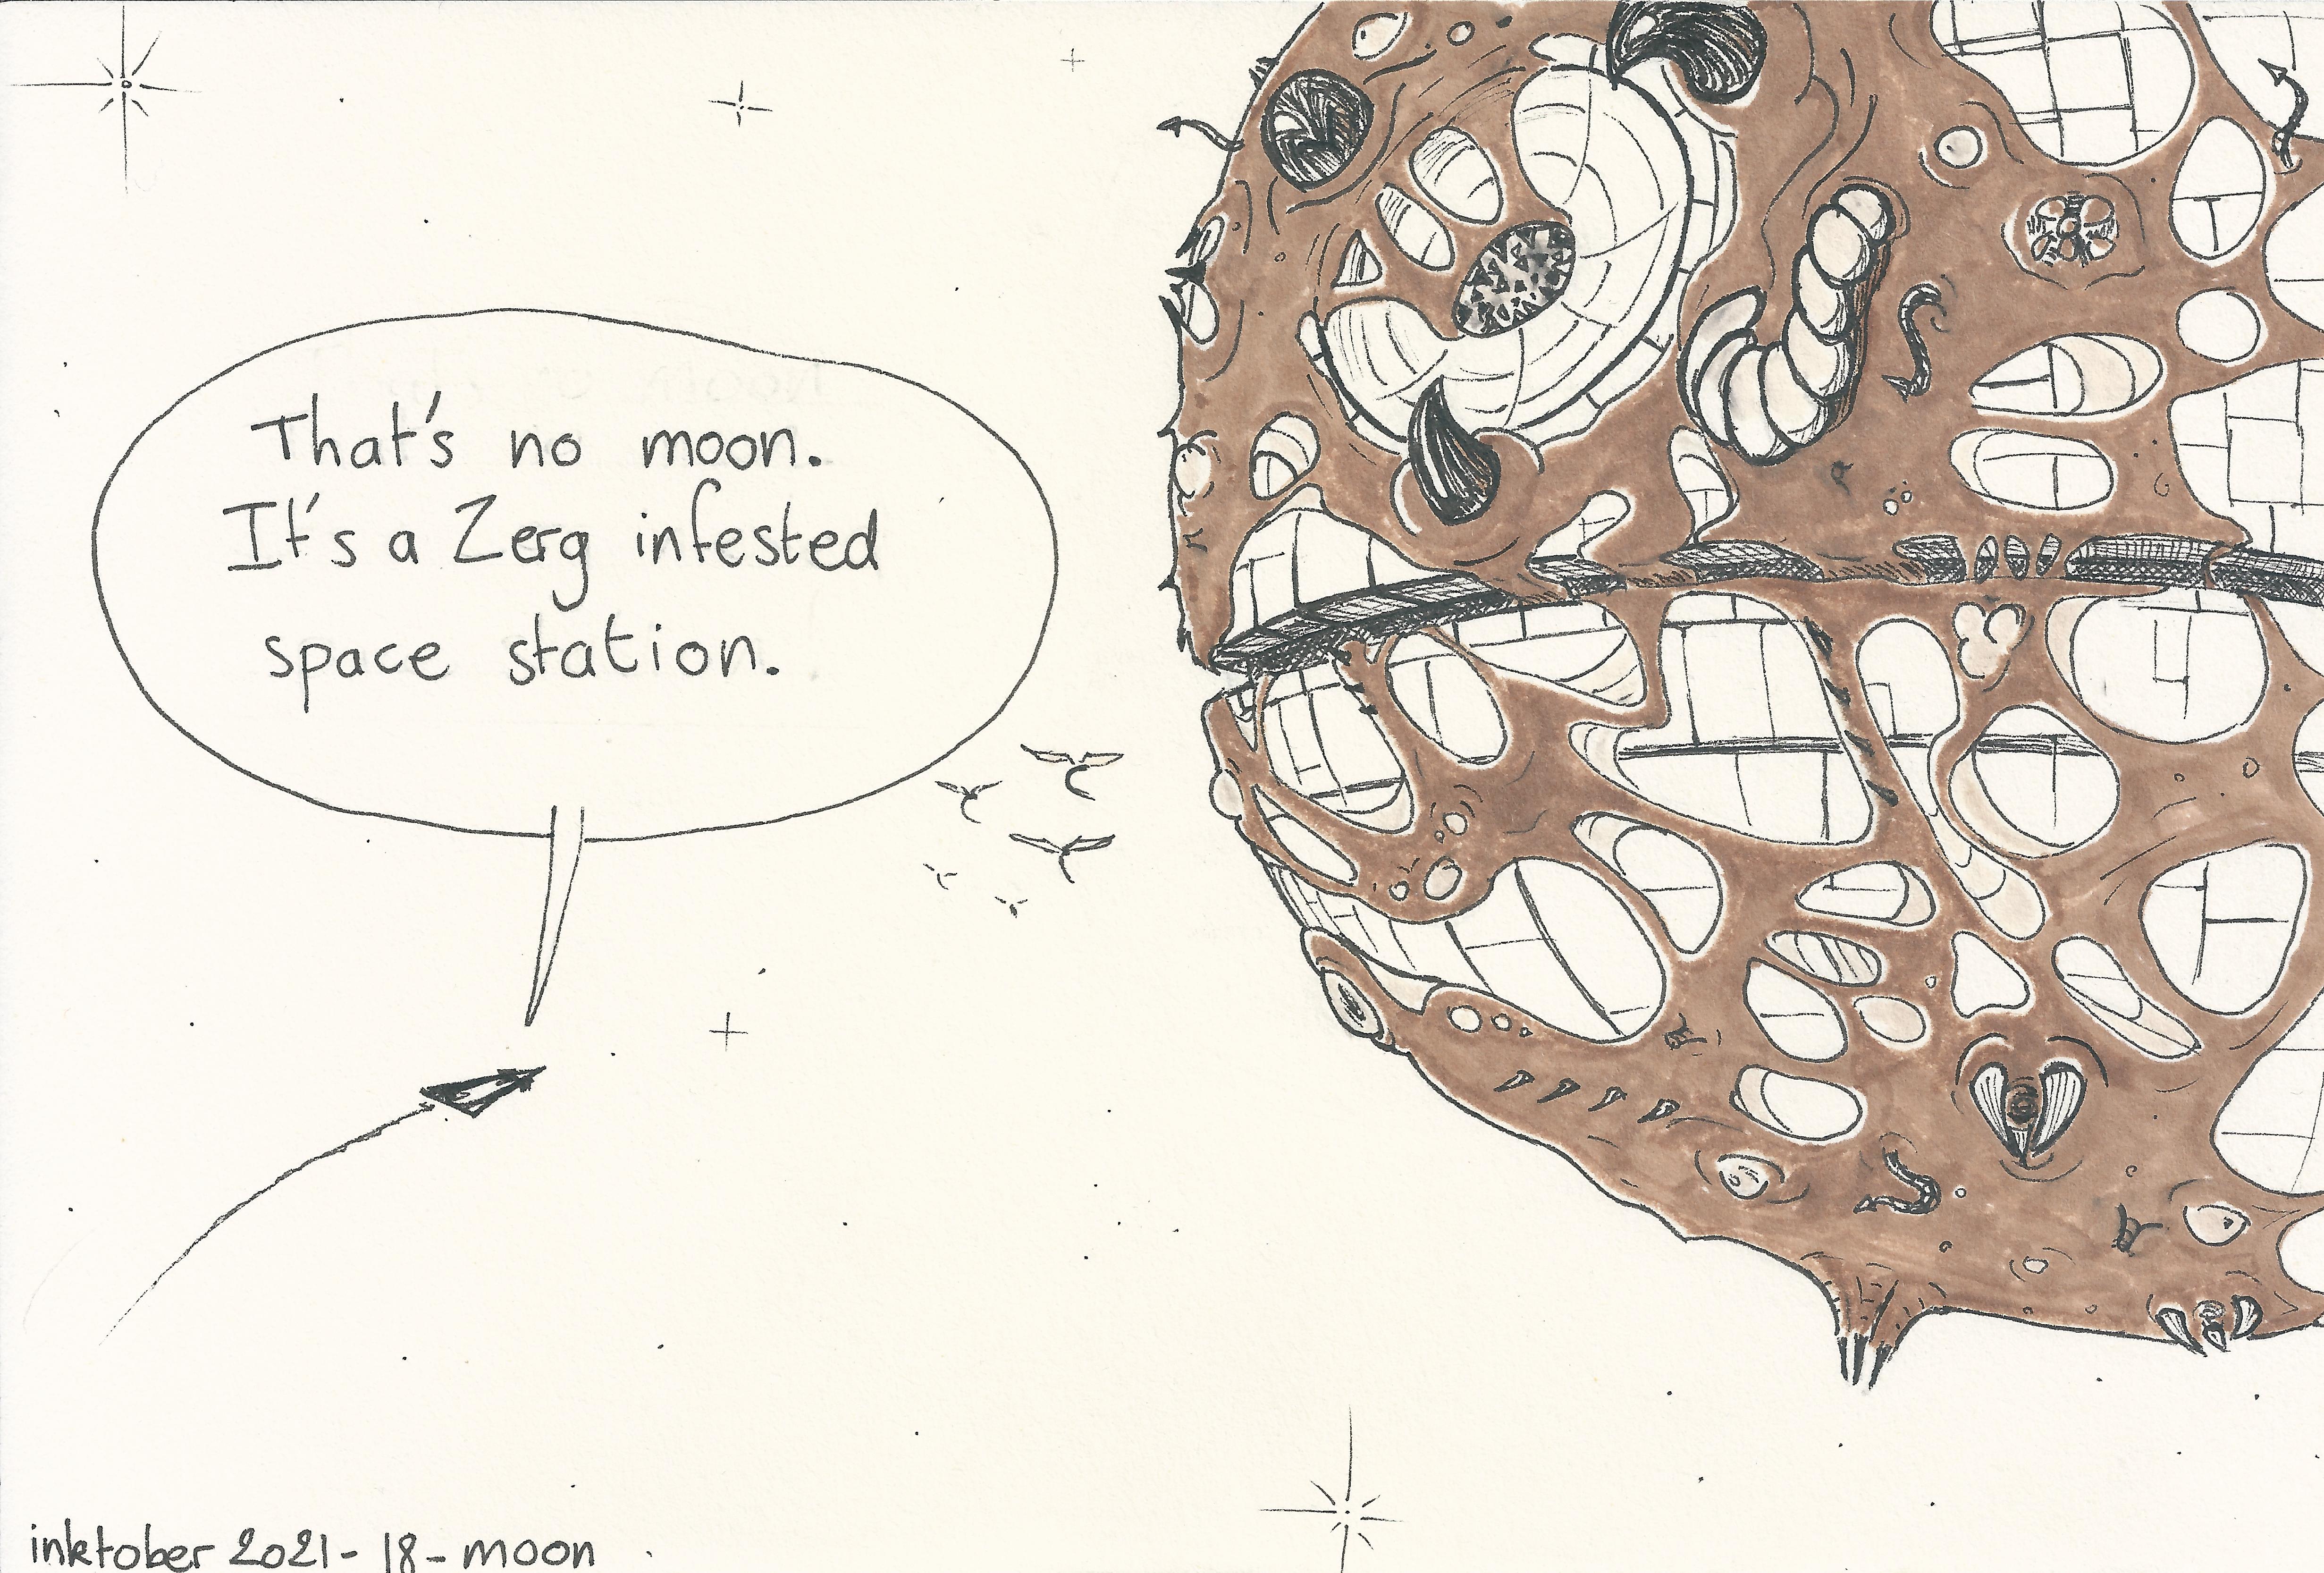 That's no moon.
It's a Zerg infested
space station.
inktober 2021 - 18 - moon